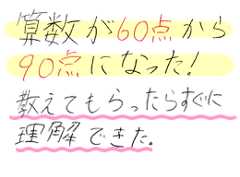 算数が60点から
90点になった!
教えてもらったらすぐに
理解できた。